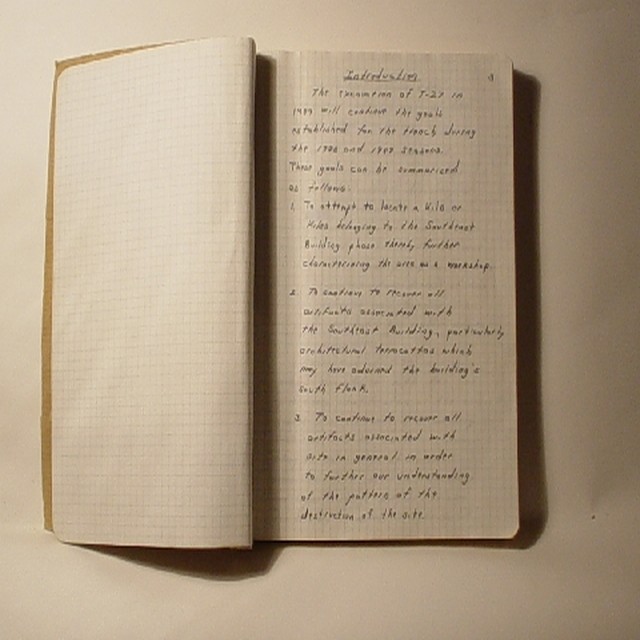 Introduction
The excavation of T-27 in
will continue the goals
established for the trench during
the 1988 and 1989 seasons.
These goals can be summarized
as follows.
1. To attempt to locate a Kiln or
Kilns belonging to the Southeast
Building phase thereby further
characterizing the area as a workshop.
2. To continue to recover all
artifacts associated with
the Southeast Building, particularly
architectural terracottas which
may have adorned the building's
south flank.
3. To continue to recover all
artifacts associated with
site in general in order
to further our understanding
of the pattern of the
destruction of the site.